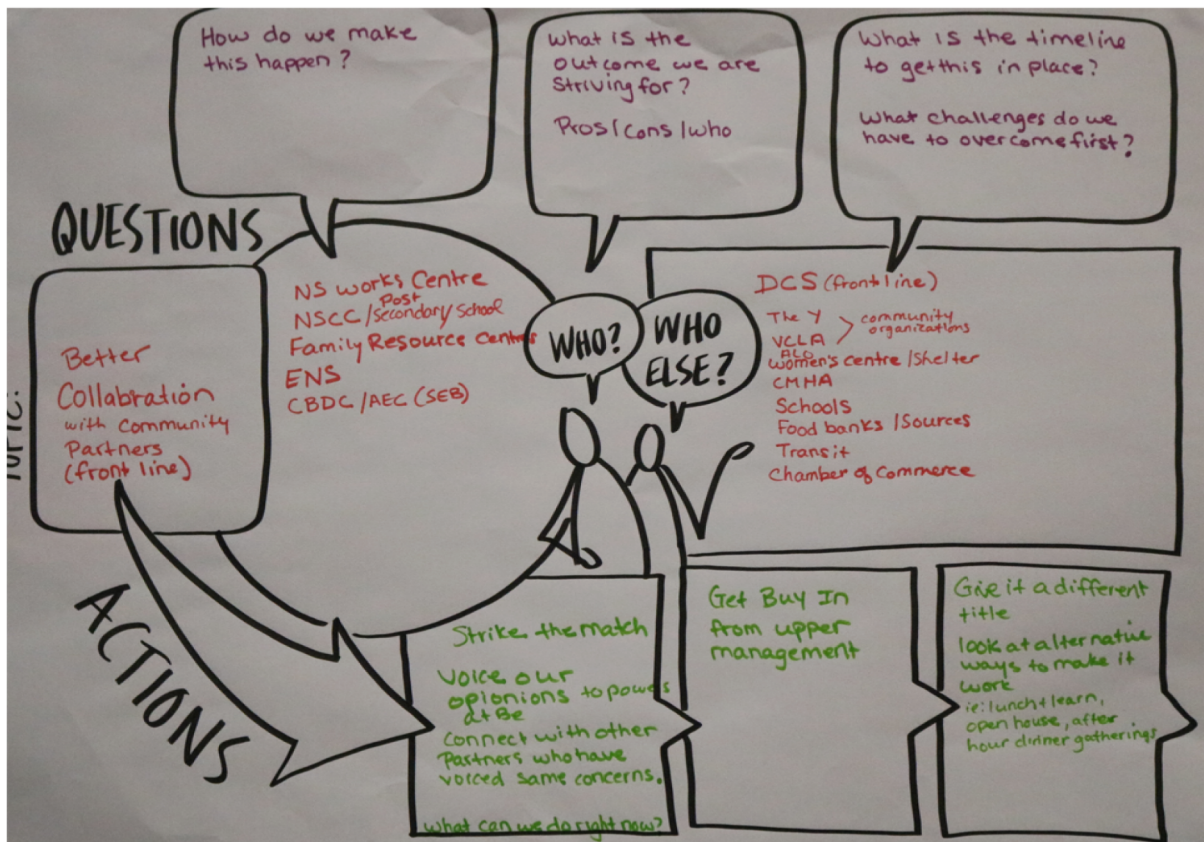 How do we make
this happen?
What is the
outcome we are
striving for?
Pros/cons/who
What is the timeline
to get this in place?
What challenges do we
have to overcome first?
QUESTIONS
TOPIC:
Better
Collabration
with community
Partners
(front line)
NS works Centre
NSCC/Post Secondary/School
Family Resource Centres
ENS
CBDC/AEC (SEB)
WHO?
WHO
ELSE?
DCS (frontline)
The Y
VCLA
community
organizations
ALO
women's centre/Shelter
CMHA
Schools
Food banks/Sources
Transit
Chamber of Commerce
ACTIONS
Strike the match
Voice our
opionions to powers
at Be
connect with other
Partners who have
voiced same concerns.
What can we do right now?
Get Buy In
from upper
management
Give it a different
title
look at alternative
ways to make it
work
ie: lunch + learn,
open house, after
hour dinner gatherings